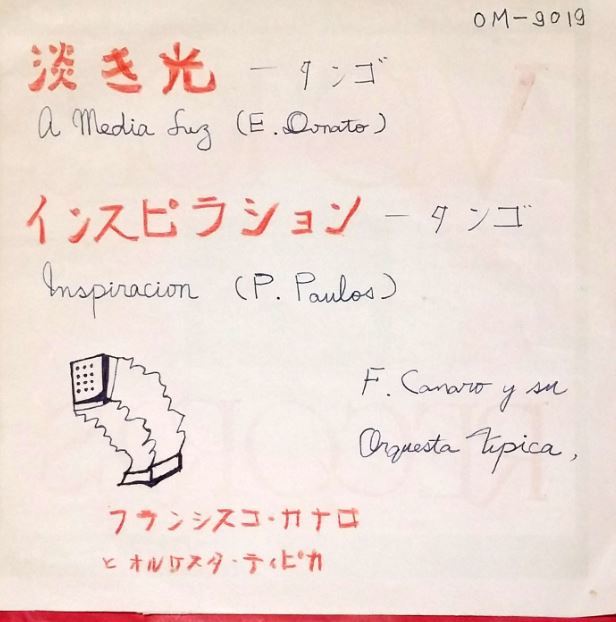 OM-9019
淡き光 ータンゴ
A Media Luz (E. Donato)
インスピラション ータンゴ
Inspiracion (P. Paulos)
F. Canaro y su
Orquesta Tipica,
フランシスコ・カナロ
と オルケスタ・ティピカ